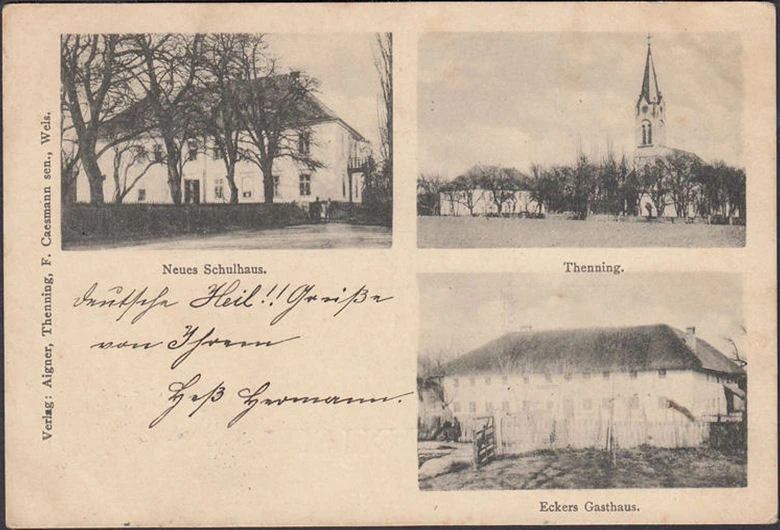 Verlag: Aigner, Thenning, F. Caesmann sen., Wels.
Neues Schulhaus.
Thenning.
deutsche Heil!! Grüße
von Ihrem
Heß Hermann.
Eckers Gasthaus.